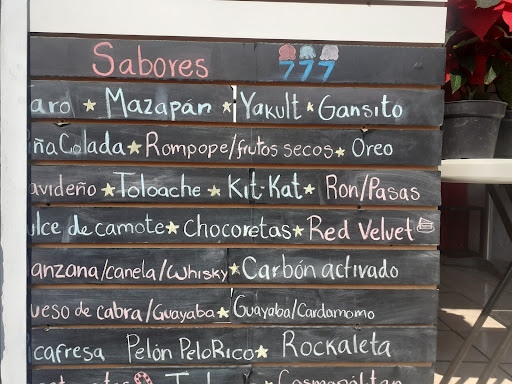 Sabores
aro ★ Mazapán ★ Yakult ★ Gansito
ñaColada ★ Rompope/frutos secos ★ Oreo
avideño ★ Toloache ★ Kit-Kat ★ Ron/Pasas
ulce de camote ★ Chocoretas ★ Red Velvet
anzana/canela/Whisky ★ Carbón activado
ueso de cabra/Guayaba ★ Guayaba/Cardamomo
cafresa Pelón PeloRico ★ Rockaleta